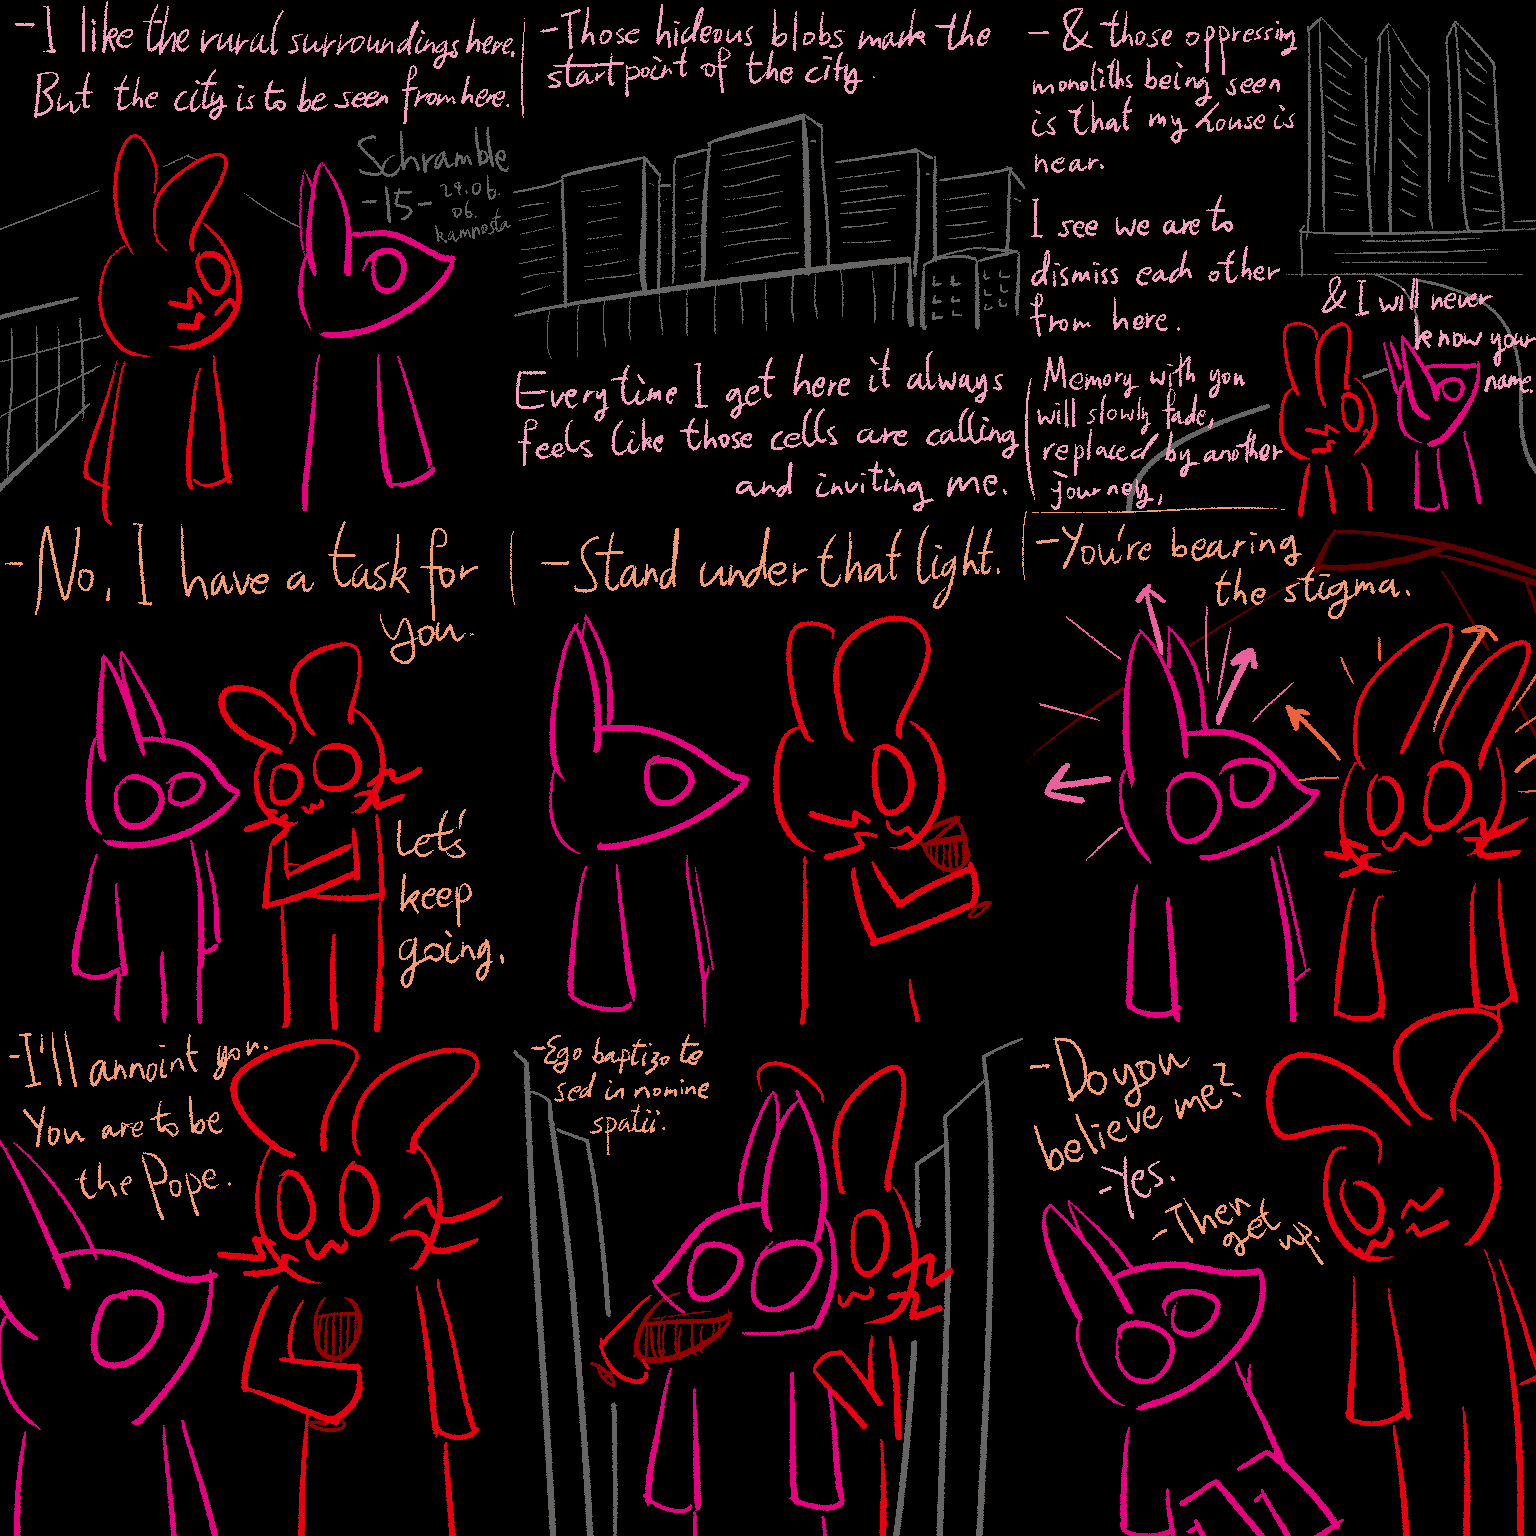 -I like the rural surroundings here.
But the city is to be seen from here.
Schramble
-15-
29.06.
06.
kamnosta
-Those hideous blobs mark the
start point of the city.
Everytime I get here it always
feels like those cells are calling
and inviting me.
- & those oppressing
monoliths being seen
is that my house is
near.
I see we are to
dismiss each other
from here.
Memory with you
will slowly fade,
replaced by another
journey,
& I will never
know your
name.
-No, I have a task for
you.
Let's
keep
going.
-Stand under that light.
-You're bearing
the stigma.
-I'll annoint you.
You are to be
the Pope.
-Ego baptizo te
sed in nomine
spatii.
-Do you
believe me?
-Yes.
-Then
get up.